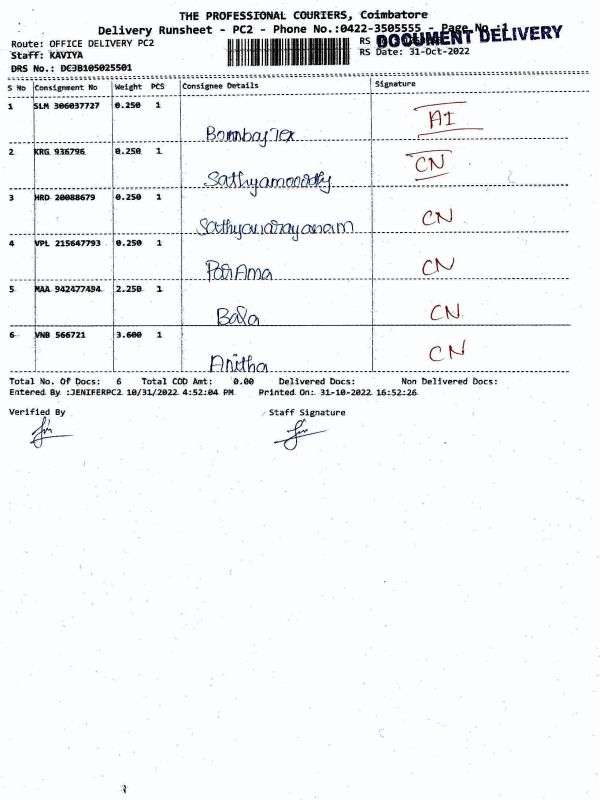 THE PROFESSIONAL COURIERS, Coimbatore
Delivery Runsheet - PC2 - Phone No.:0422-3505555 - Page No :1
DOCUMENT DELIVERY
Route: OFFICE DELIVERY PC2 RS
Staff: KAVIYA RS Date: 31-Oct-2022
DRS No.: DC3B105025501
S No Consignment No Weight PCS Consignee Details Signature
1 SLM 306037727 0.250 1 AI
Bombay Tex
2 KRG 936796 0.250 1 CN
3 HRD 20088679 0.250 1 CN
Sathyanarayanam
4 VPL 215647793 0.250 1 CN
5 MAA 942477494 2.250 1 CN
Bala
6 VNB 566721 3.600 1 CN
Anitha
Total No. Of Docs: 6 Total COD Amt: 0.00 Delivered Docs: Non Delivered Docs:
Entered By :JENIFERPC2 10/31/2022 4:52:04 PM Printed On: 31-10-2022 16:52:26
Verified By Staff Signature